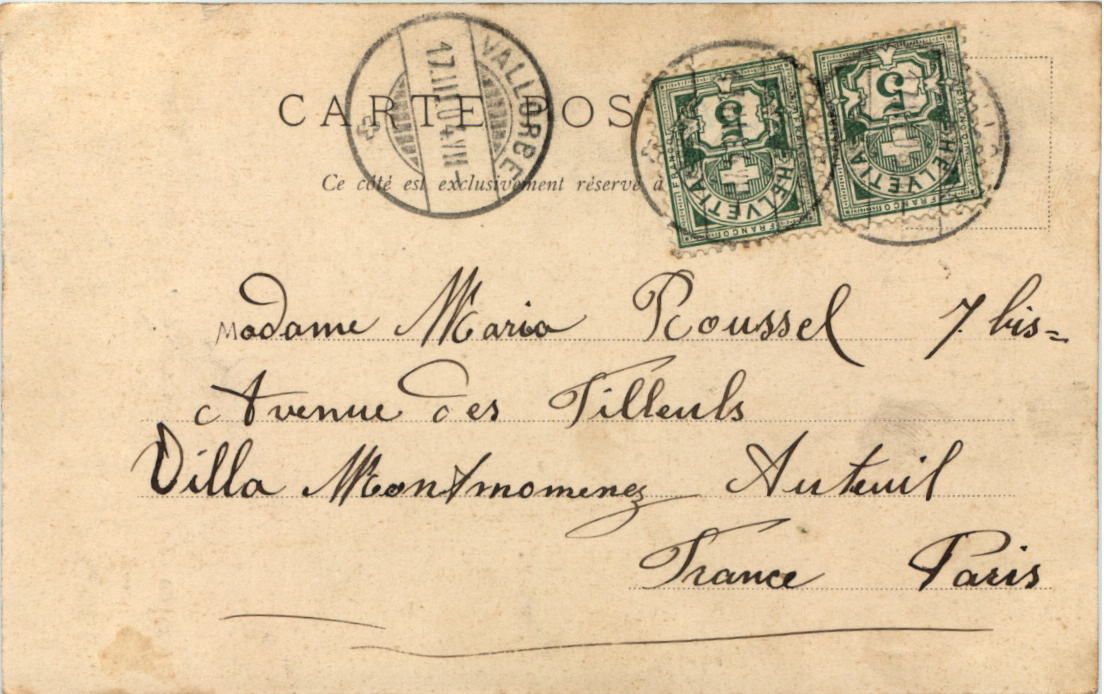 CARTE POS
VALLORBE
17.II.04.VII
Ce côté est exclusivement réservé à
5
HELVETIA
FRANCO
5
HELVETIA
FRANCO
Madame Maria Roussel 7 bis=
Avenue des Tilleuls
Villa Montmomenez Auteuil
France Paris